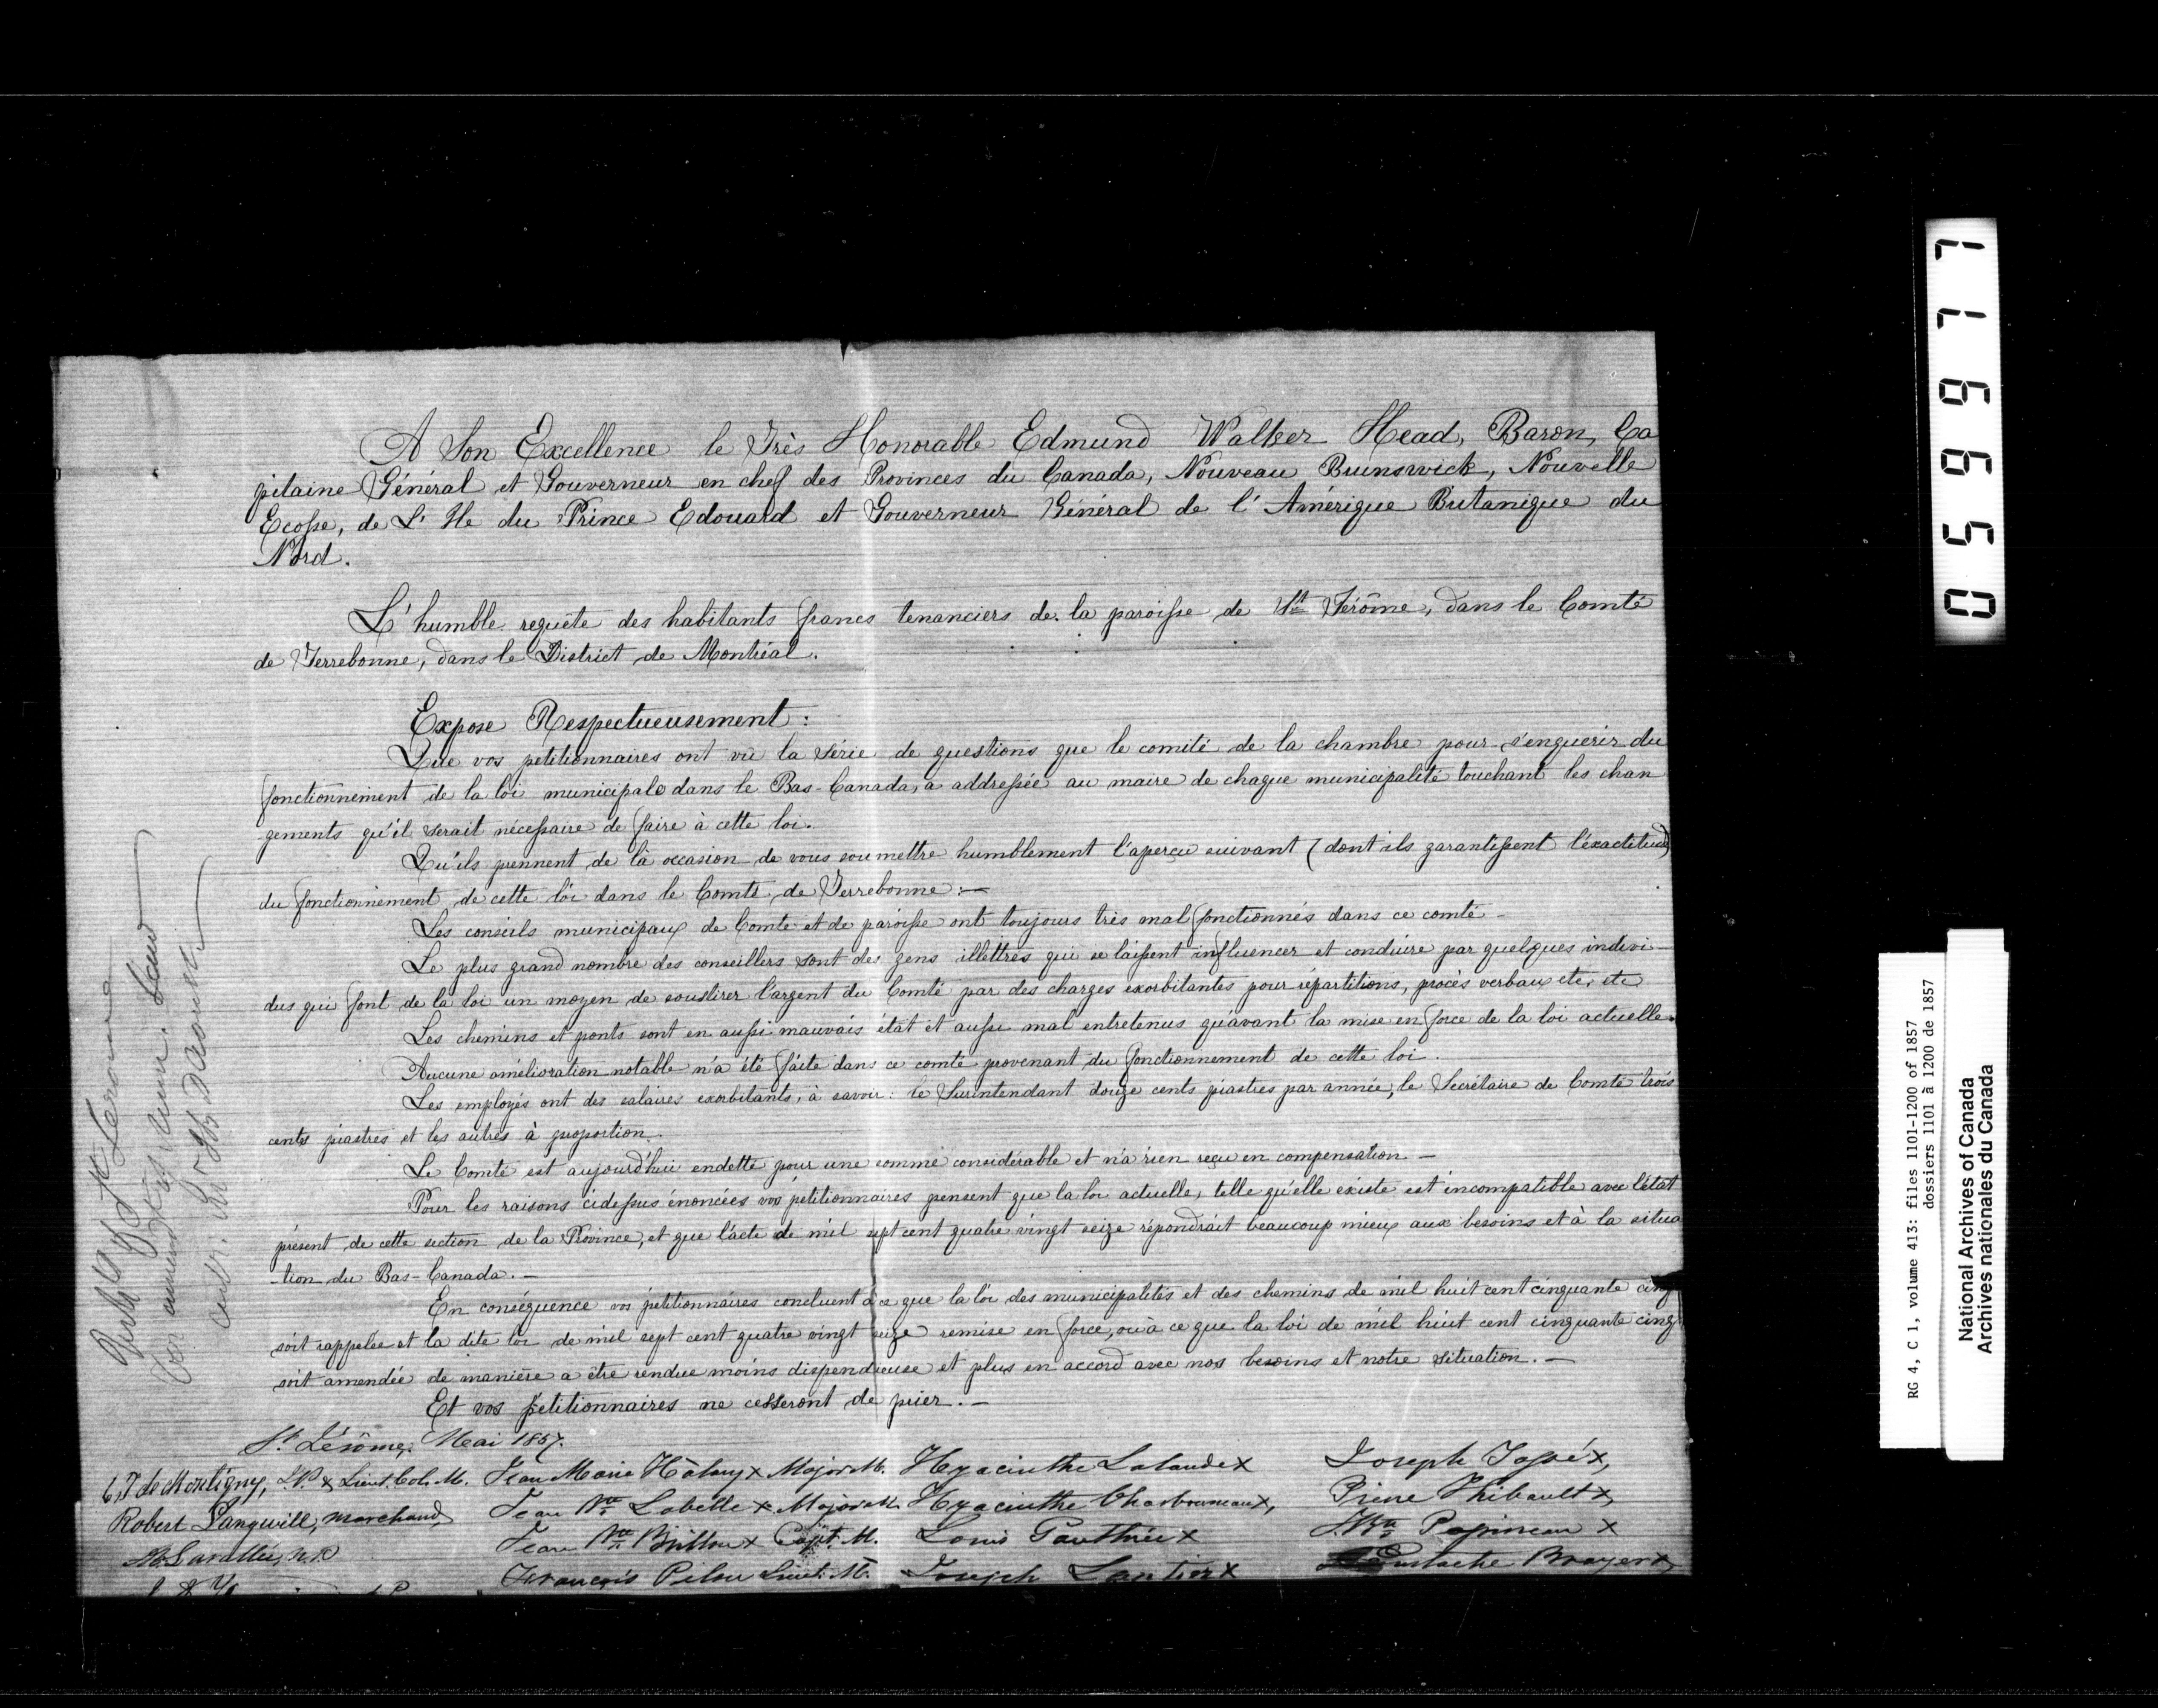 A Son Excellence le Très Honorable Edmund Walker Head, Baron, Ca
pitaine Général et Gouverneur en chef des Provinces du Canada, Nouveau Brunswick, Nouvelle
Ecosse, de L'Ile du Prince Edouard et Gouverneur Général de l'Amérique Britanique du
Nord.
L'humble requête des habitants francs tenanciers de la paroisse de St Jérôme, dans le Comté
de Terrebonne, dans le District de Montréal.
Expose Respectueusement :
Que vos pétitionnaires ont vû la série de questions que le comité de la chambre pour s'enquérir du
fonctionnement de la loi municipale dans le Bas-Canada, a addressée au maire de chaque municipalité touchant les chan
gements qu'il serait nécessaire de faire à cette loi.
Qu'ils prennent de là occasion de vous soumettre humblement l'aperçu suivant (dont ils garantissent l'éxactitude)
du fonctionnement de cette loi dans le Comté de Terrebonne :—
Les conseils municipaux de Comté et de paroisse ont toujours très mal fonctionnés dans ce comté —
Le plus grand nombre des conseillers sont des gens illettrés qui se laissent influencer et conduire par quelques indivi-
dus qui font de la loi un moyen de soustirer l'argent du Comté par des charges exorbitantes pour répartitions, procès verbaux etc, etc
Les chemins et ponts sont en aussi mauvais état et aussi mal entretenus qu'avant la mise en force de la loi actuelle.
Aucune amélioration notable n'a été faite dans ce comté provenant du fonctionnement de cette loi.
Les employés ont des salaires exorbitants, à savoir : le Surintendant douze cents piastres par année, le Secrétaire de Comté trois
cents piastres et les autres à proportion.
Le Comté est aujourd'hui endetté pour une somme considérable et n'a rien reçu en compensation. —
Pour les raisons cidessus énoncées vos pétitionnaires pensent que la loi actuelle, telle qu'elle éxiste est incompatible avec l'état
présent de cette section de la Province, et que l'acte de mil sept cent quatre vingt seize répondrait beaucoup mieux aux besoins et à la situa
-tion du Bas-Canada. —
En conséquence vos pétitionnaires concluent à ce que la loi des municipalités et des chemins de mil huit cent cinquante cinq
soit rappelée et la dite loi de mil sept cent quatre vingt seize remise en force, ou à ce que la loi de mil huit cent cinquante cinq
soit amendée de manière a être rendue moins dispendieuse et plus en accord avec nos besoins et notre situation. —
Et vos pétitionnaires ne cesseront de prier. —
St. Jérôme, Mai 1857.
de Montigny, J.P. & Lieut. Col. M. Jean Marie x Major M. Hyacinthe Lalande x Joseph x,
Robert Langwill, marchand, Jean Bte Labelle x Major M. Hyacinthe Charbonneau x, Pierre Thibault x,
Lavallée, N.P. Jean Bte x Capt. M. Louis Gauthier x J. Bte Papineau x
François Pilon Lieut. M. Joseph Lantier x Eustache Brayer x,
St Jerome
05 99 77
RG 4, C 1, volume 413: files 1101-1200 of 1857
dossiers 1101 à 1200 de 1857
National Archives of Canada
Archives nationales du Canada